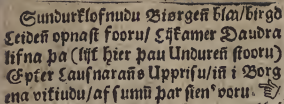 Sundurklofnudu Biørgeñ blaa/ birgd
Leideñ opnast fooru/ Lijkamer Daudra
lifna þa (lijkt hier þau Undureñ stooru)
Epter Lausnarañs Upprisu/ iñ i Borg
ena vitiudu/ af sumũ þar sien' voru.